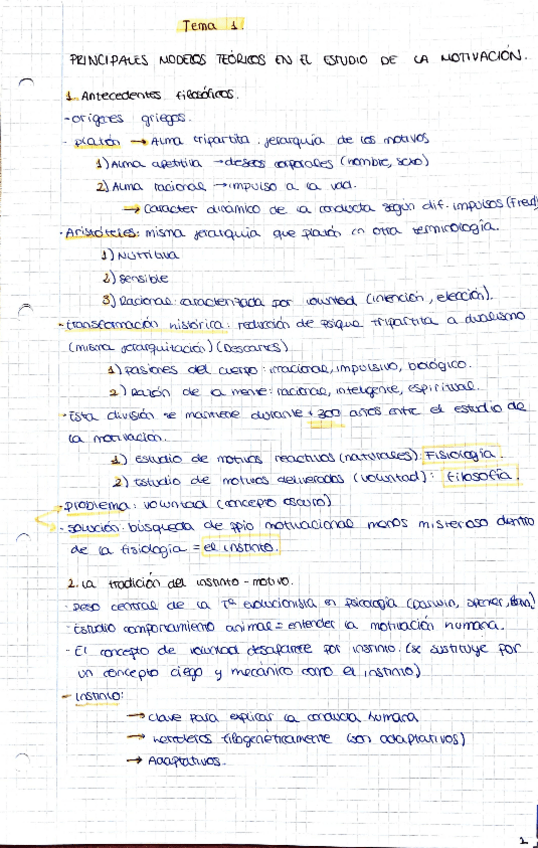 Tema 1.
PRINCIPALES MODELOS TEÓRICOS EN EL ESTUDIO DE LA MOTIVACIÓN.
1. Antecedentes filosóficos.
-orígenes griegos.
- Platón → Alma tripartita. jerarquía de los motivos
1) Alma apetitiva → deseos corporales (hambre, sexo)
2) Alma racional → impulso a la
→ Carácter dinámico de la conducta según dif. impulsos (Freud)
- Aristóteles: misma jerarquía que platón en otra terminología.
1) Nutritiva
2) Sensible
3) Racional: caracterizada por voluntad (intención, elección).
- transformación histórica: reducción de psique tripartita a dualismo
(misma jerarquización) (Descartes)
1) pasiones del cuerpo: irracional, impulsivo, biológico.
2) Razón de la mente: racional, inteligente, espiritual.
- Esta división se mantiene durante + 300 años entre el estudio de
la motivación.
1) estudio de motivos reactivos (naturales): Fisiología.
2) Estudio de motivos deliverados (voluntad): filosofía.
- problema: voluntad (concepto oscuro)
- solución: búsqueda de ppio motivacional menos misterioso dentro
de la fisiología = el instinto.
2. La tradición del instinto-motivo.
- Peso central de la Tª evolucionista en psicología (Darwin,
- Estudio comportamiento animal = entender la motivación humana.
- El concepto de voluntad desaparece por instinto. (se sustituye por
un concepto ciego y mecánico como el instinto)
- Instinto:
→ Clave para explicar la conducta humana
→ heredados filogenéticamente (son adaptativos)
→ Adaptativos.
1